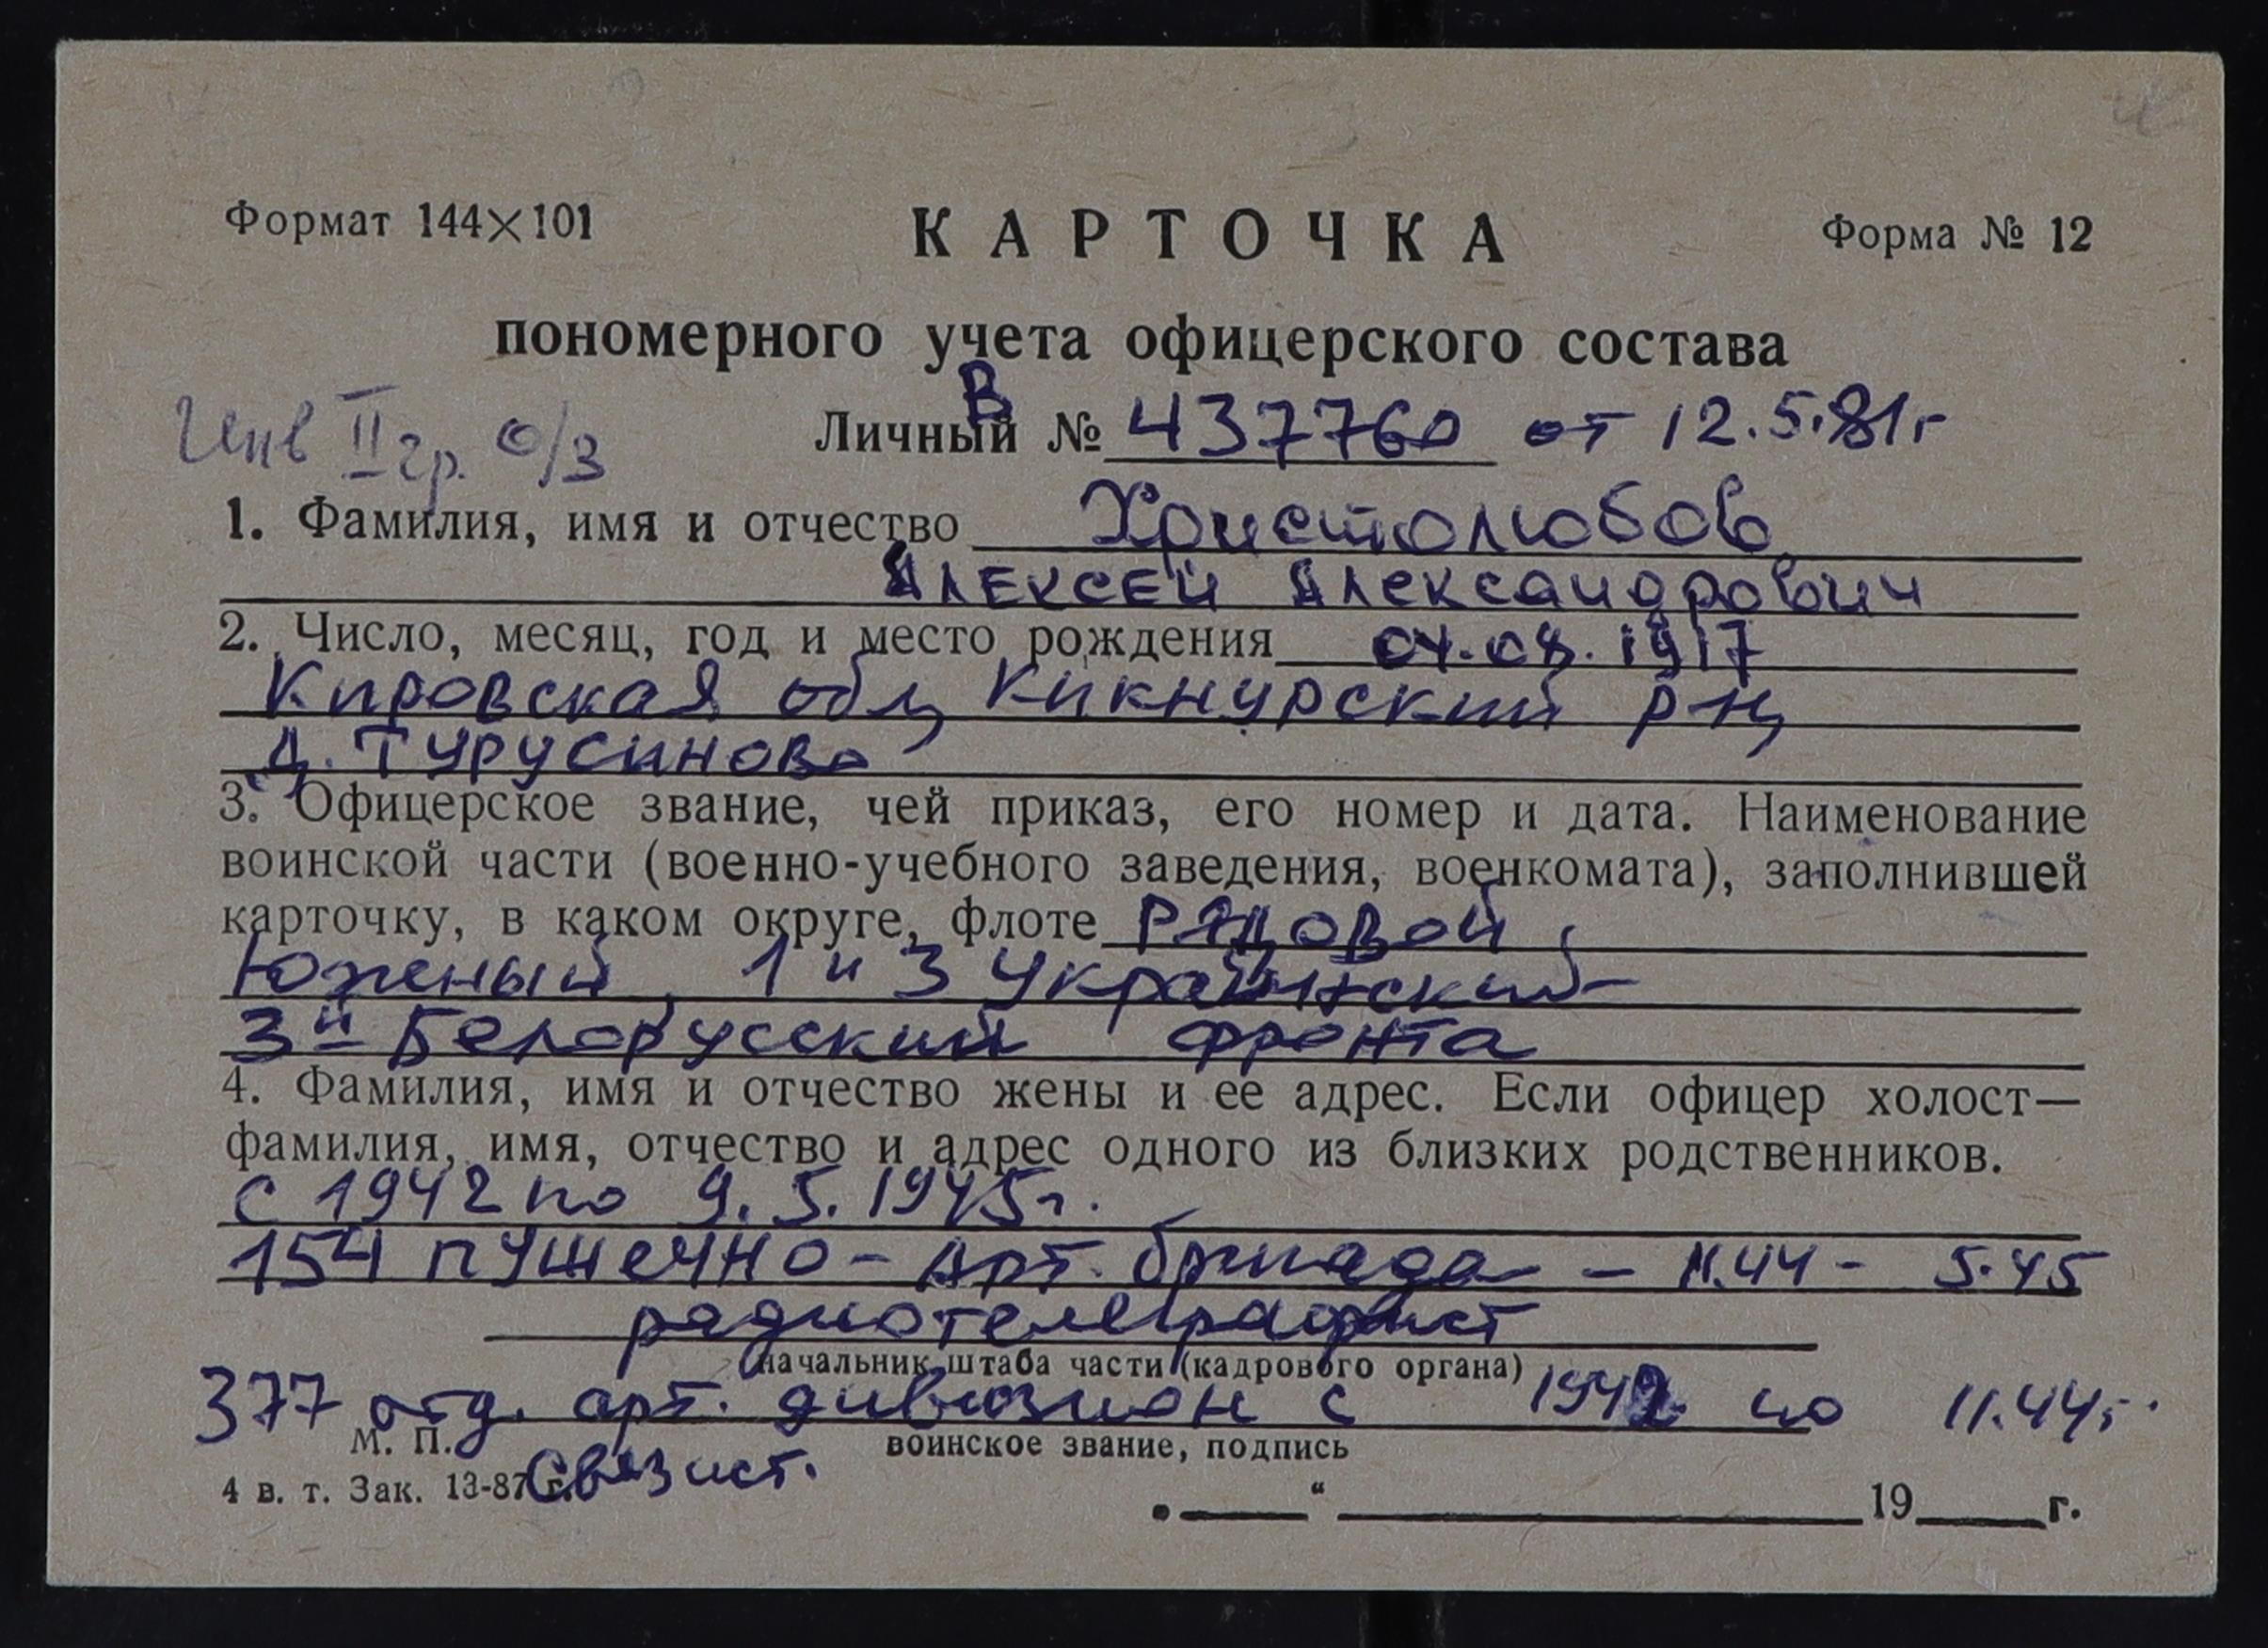 Формат 144×101 КАРТОЧКА Форма № 12
пономерного учета офицерского состава
Инв II гр. о/з Личный № В 437760 от 12.5.81г
1. Фамилия, имя и отчество Христолюбов
Алексей Александрович
2. Число, месяц, год и место рождения 04.08.1917
Кировская обл, Кикнурский р-н,
д. Турусиново
3. Офицерское звание, чей приказ, его номер и дата. Наименование
воинской части (военно-учебного заведения, военкомата), заполнившей
карточку, в каком округе, флоте РЯДОВОЙ,
Юженый, 1 и 3 Украинский
3й Белорусский фронта
4. Фамилия, имя и отчество жены и ее адрес. Если офицер холост—
фамилия, имя, отчество и адрес одного из близких родственников.
с 1942 по 9.5.1945г.
154 пушечно-арт. бригада - 11.44 - 5.45
радиотелеграфист
начальник штаба части (кадрового органа)
377 отд. арт. дивизион с 1942 по 11.44г.
М. П. воинское звание, подпись
Связист.
4 в. т. Зак. 13-87 г.
„ “ 19 г.